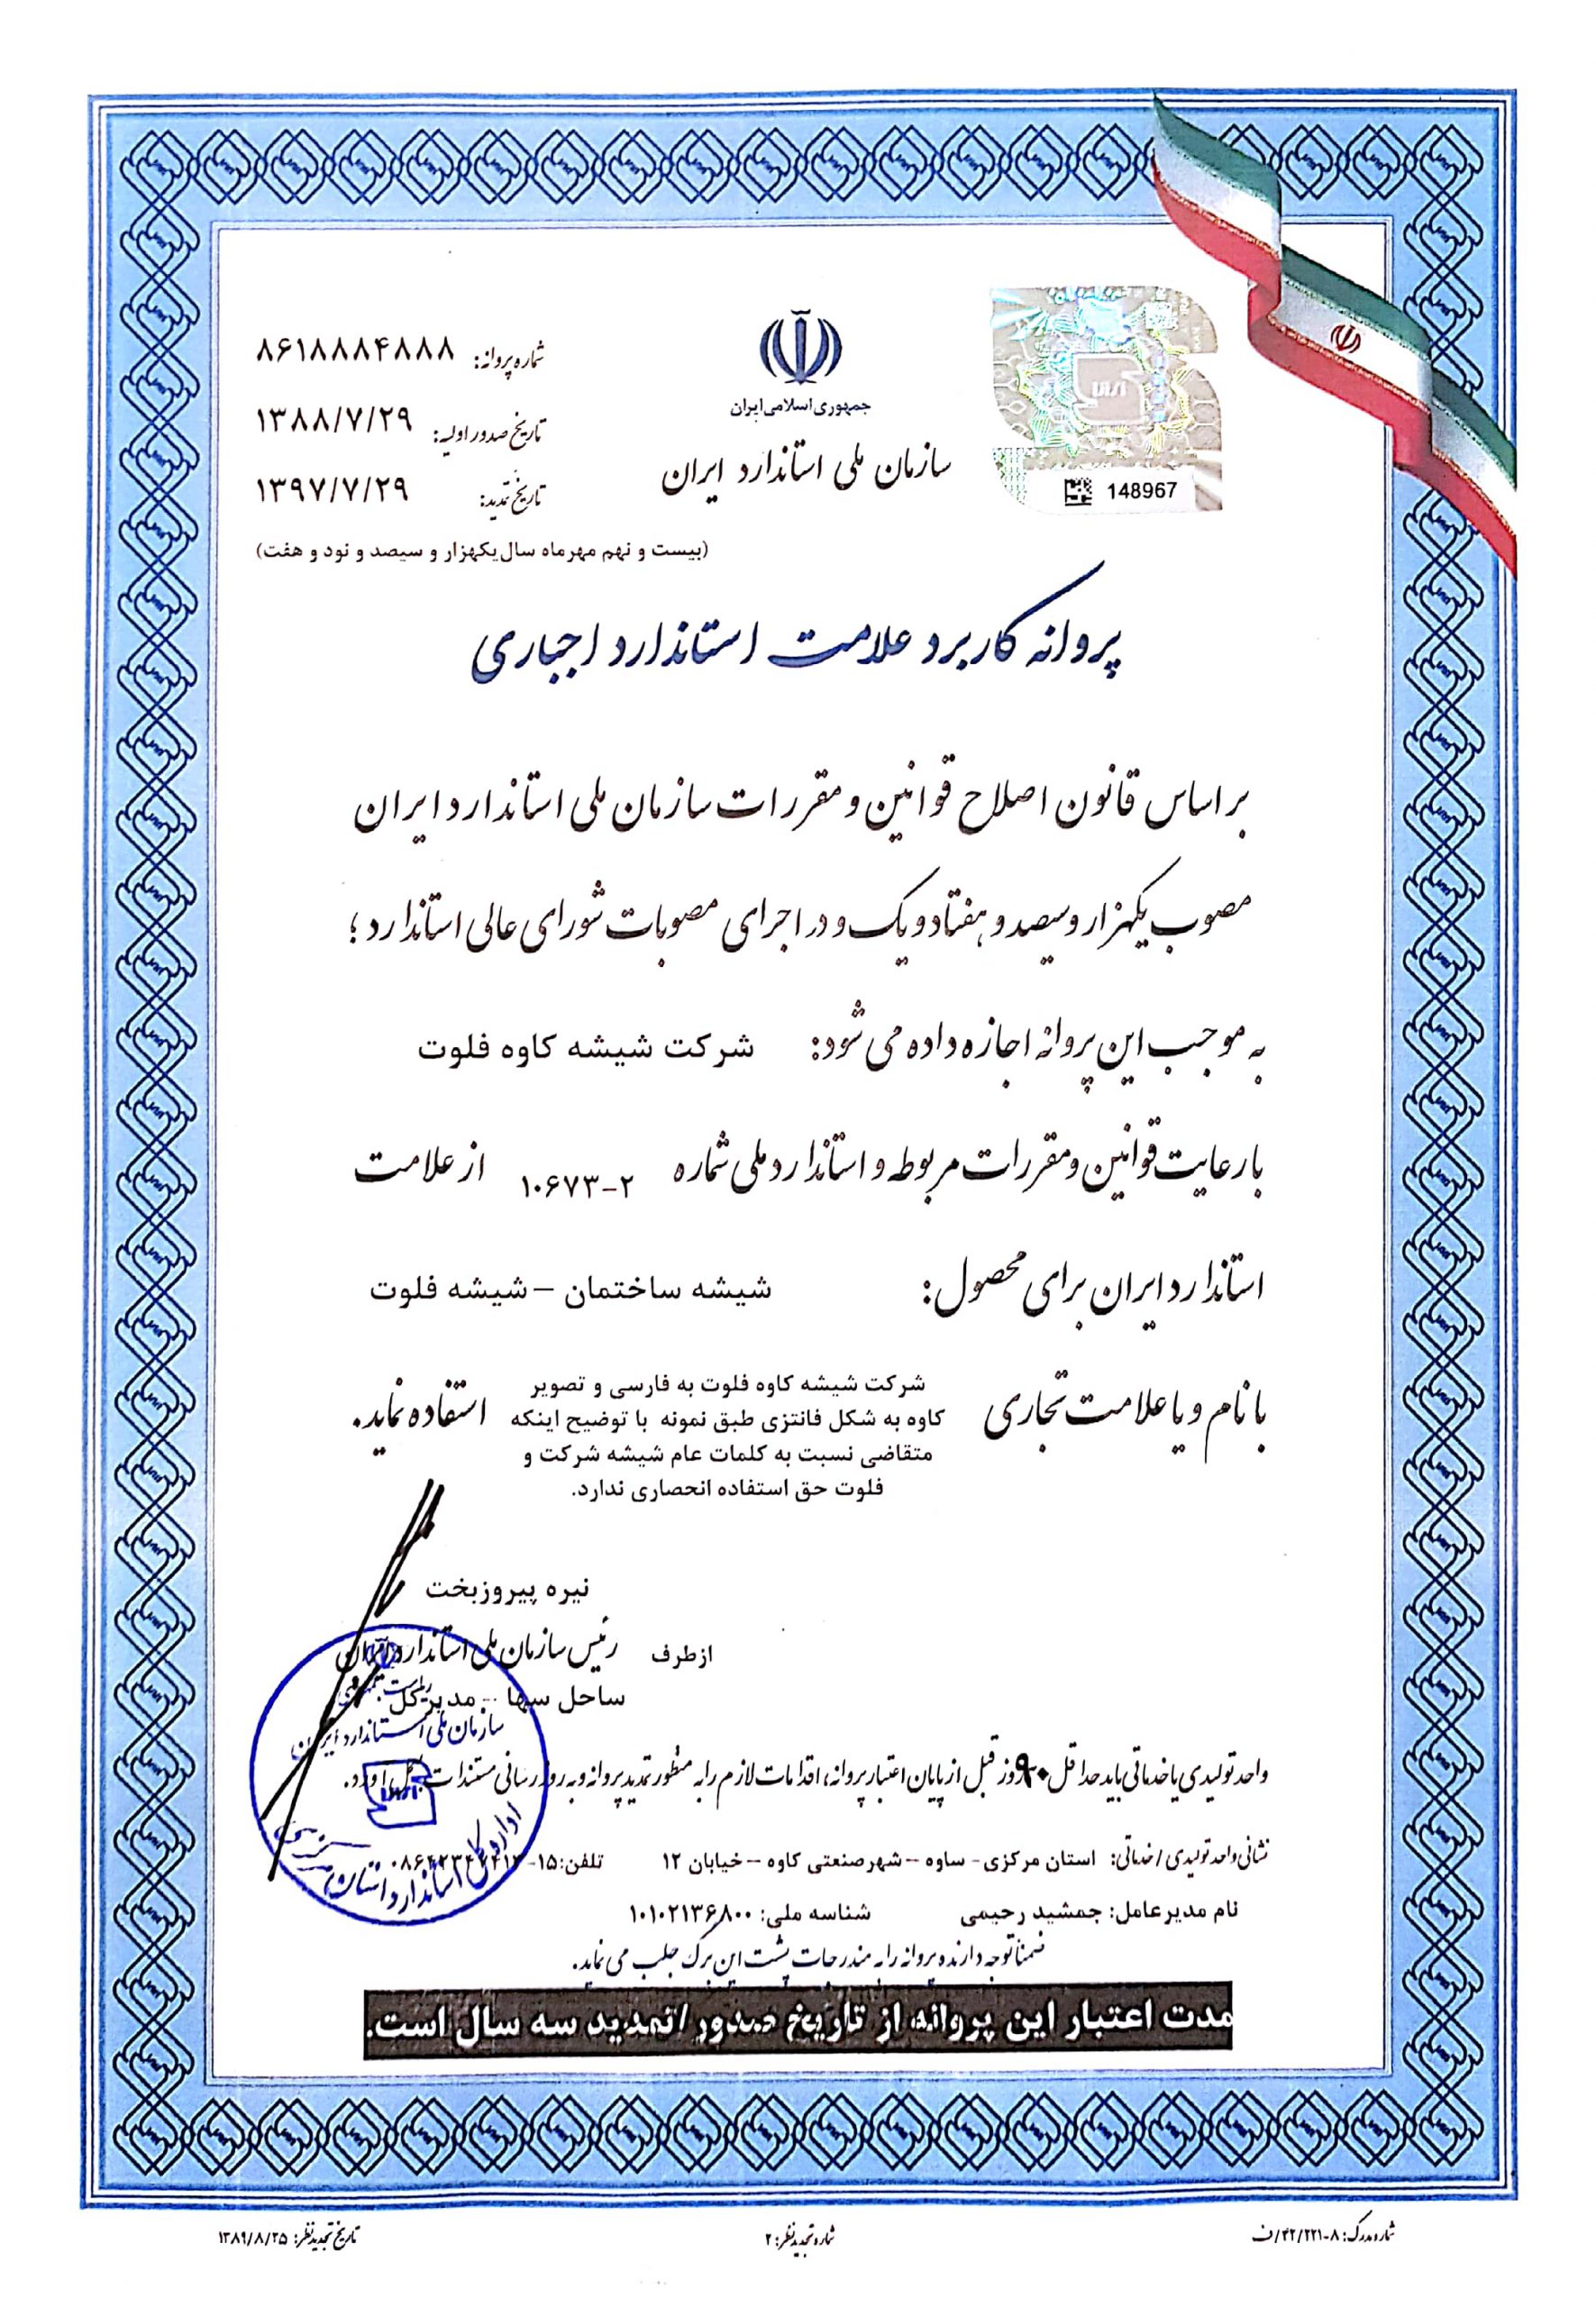 جمهوری اسلامی ایران
سازمان ملی استاندارد ایران
148967
شماره پروانه: ۸۶۱۸۸۸۴۸۸۸
تاریخ صدور اولیه: ۱۳۸۸/۷/۲۹
تاریخ تمدید: ۱۳۹۷/۷/۲۹
(بیست و نهم مهرماه سال یکهزار و سیصد و نود و هفت)
پروانه کاربرد علامت استاندارد اجباری
بر اساس قانون اصلاح قوانین و مقررات سازمان ملی استاندارد ایران
مصوب یکهزار و سیصد و هفتاد و یک و در اجرای مصوبات شورای عالی استاندارد؛
به موجب این پروانه اجازه داده می شود: شرکت شیشه کاوه فلوت
با رعایت قوانین و مقررات مربوطه و استاندارد ملی شماره ۲-۱۰۶۷۳ از علامت
استاندارد ایران برای محصول: شیشه ساختمان – شیشه فلوت
با نام و یا علامت تجاری
شرکت شیشه کاوه فلوت به فارسی و تصویر
کاوه به شکل فانتزی طبق نمونه با توضیح اینکه
متقاضی نسبت به کلمات عام شیشه شرکت و
فلوت حق استفاده انحصاری ندارد.
استفاده نماید.
نیره پیروزبخت
از طرف رئیس سازمان ملی استاندارد ایران
ساحل سها - مدیر کل
سازمان ملی استاندارد ایران
اداره کل استاندارد استان
واحد تولیدی یا خدماتی باید حداقل ۹۰ روز قبل از پایان اعتبار پروانه، اقدامات لازم را به منظور تمدید پروانه و به روز رسانی مستندات بعمل آورد.
نشانی واحد تولیدی / خدماتی: استان مرکزی - ساوه – شهر صنعتی کاوه – خیابان ۱۲ تلفن: ۱۵-
نام مدیرعامل: جمشید رحیمی شناسه ملی: ۱۰۱۰۲۱۳۶۸۰۰
ضمناً توجه دارنده پروانه را به مندرجات پشت این برگ جلب می نماید.
مدت اعتبار این پروانه از تاریخ صدور /تمدید سه سال است.
شماره مدرک: ف/۴۲/۲۲۱-۸
شماره تجدید نظر: ۲
تاریخ تجدید نظر: ۱۳۸۹/۸/۲۵